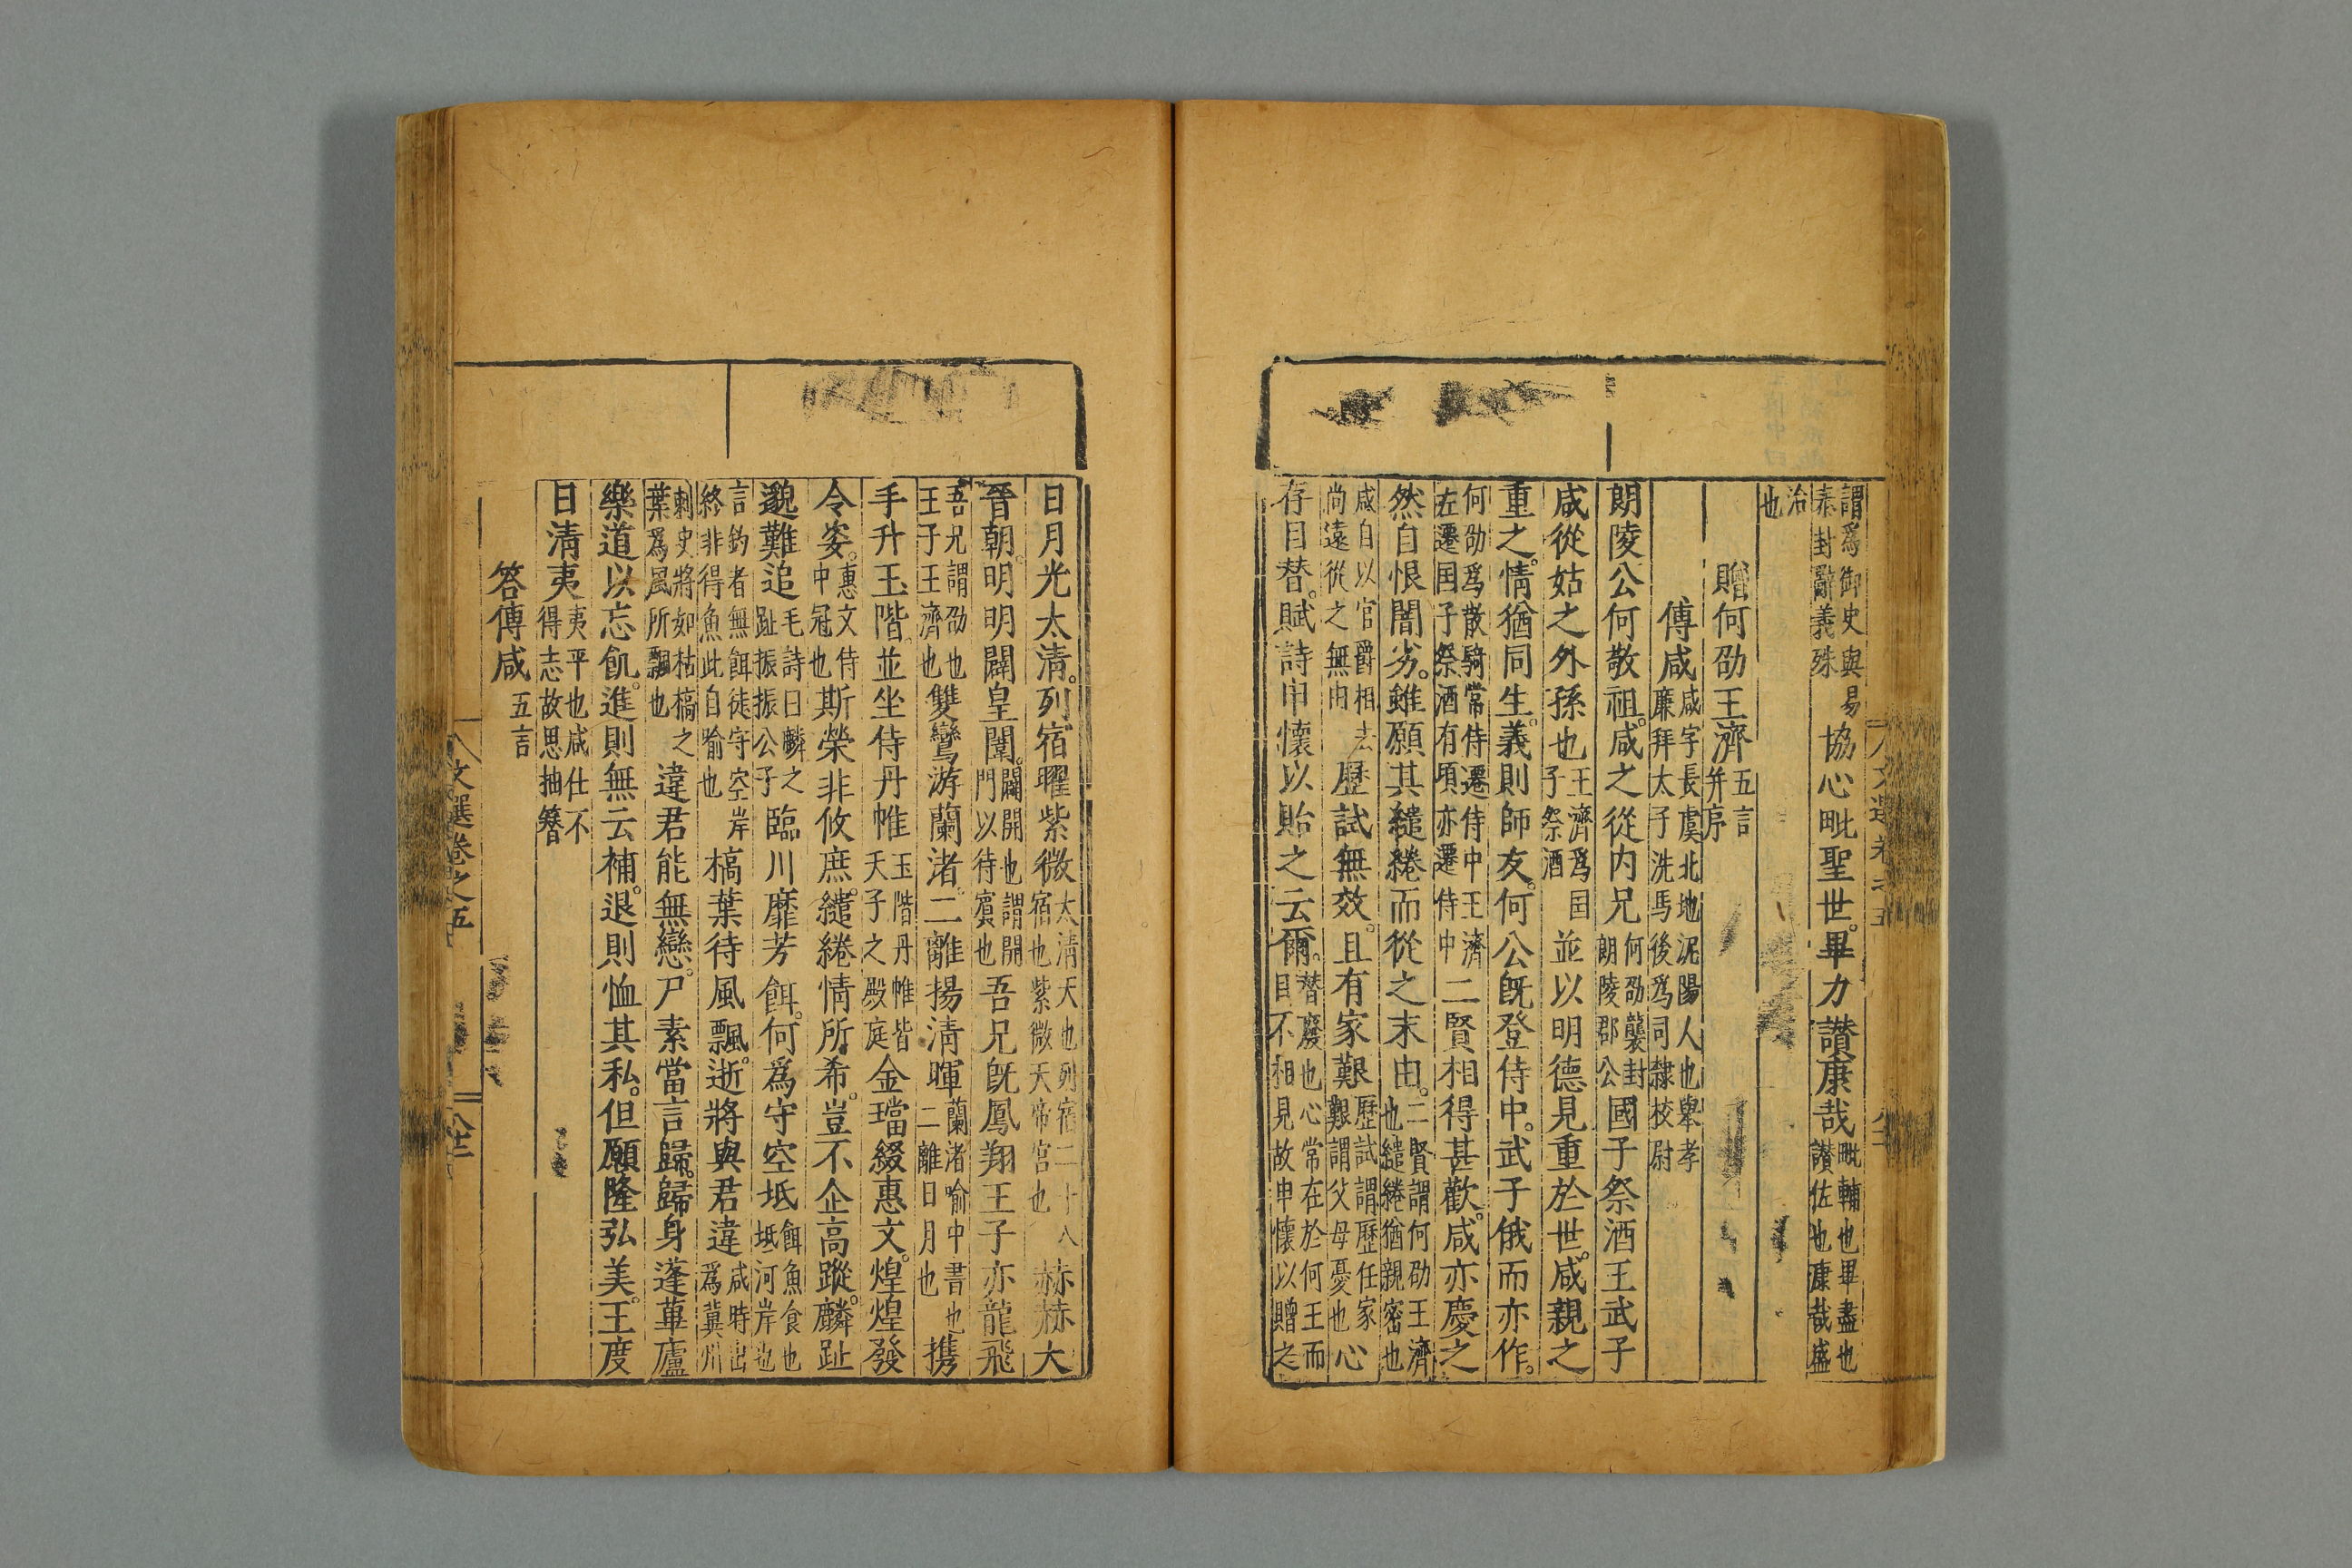 謂爲御史與易泰封辭義殊協心毗聖世。畢力讚康哉毗輔也畢盡也讚佐也康哉盛
治也
贈何劭王濟五言并序
傅咸咸字長虞北地泥陽人也舉孝廉拜太子洗馬後爲司隸校尉
朗陵公何敬祖。咸之從內兄何劭襲封朗陵郡公國子祭酒王武子
咸從姑之外孫也王濟爲国子祭酒並以明德見重於世。咸親之
重之。情猶同生。義則師友。何公旣登侍中。武子俄而亦作。
何劭爲散騎常侍遷侍中王濟左遷国子祭酒有頃亦遷侍中二賢相得甚歡。咸亦慶之
然自恨闇劣。雖願其繾綣而從之末由。二賢謂何劭王濟也繾綣猶親密也
咸自以官爵相去尚遠從之無由歷試無效。且有家艱歷試謂歷任家艱謂父母憂也心
存目替。賦詩申懷以貽之云爾。替廢也心常在於何王而目不相見故申懷以贈之
日月光太清。列宿曜紫微太清天也列宿二十八宿也紫微天帝宮也赫赫大
晉朝。明明闢皇闈。闢開也謂開門以待賓也吾兄旣鳳翔王子亦龍飛
吾兄謂劭也王子王濟也雙鸞游蘭渚。二離揚清暉蘭渚喻中書也二離日月也携
手升玉階。並坐侍丹帷玉階丹帷皆天子之殿庭金璫綴惠文。煌煌發
令姿。惠文侍中冠也斯榮非攸庶。繾綣情所希。豈不企高蹤。麟趾
邈難追毛詩曰麟之趾振振公子臨川靡芳餌。何爲守空坻餌魚食也坻河岸也
言釣者無餌徒守空岸終非得魚此自喻也槁葉待風飄。逝將與君違咸時出爲冀州
刺史將如枯槁之葉爲風所飄也違君能無戀。尸素當言歸。歸身蓬蓽廬
樂道以忘飢。進則無云補。退則恤其私。但願隆弘美。王度
日清夷夷平也咸仕不得志故思抽簪
答傅咸五言
文選卷之五